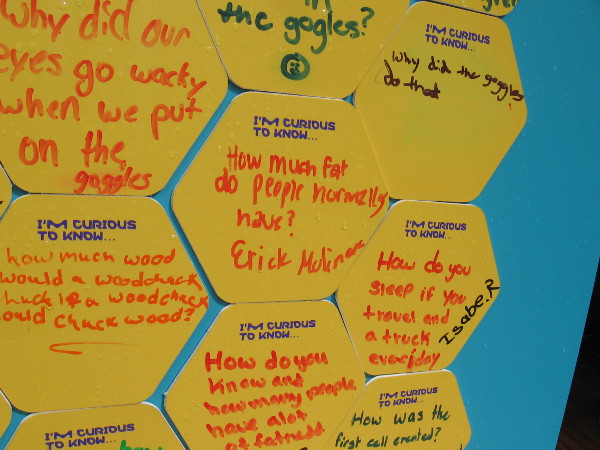 why did our
eyes go wacky
when we put
on the
goggles
the gogles?
I'M CURIOUS
TO KNOW...
Why did the goggles
do that
I'M CURIOUS
TO KNOW...
How much fat
do people normally
have?
Erick
I'M CURIOUS
TO KNOW...
how much wood
would a woodchuck
chuck if a woodchuck
could chuck wood?
I'M CURIOUS
TO KNOW...
How do you
sleep if you
travel and
a truck
everyday
Isabe.R
I'M CURIOUS
TO KNOW...
How do you
know and
how many people
have alot
of fatness
I'M CURIOUS
TO KNOW...
How was the
first cell created?
I'M CURIOUS
TO KNOW...